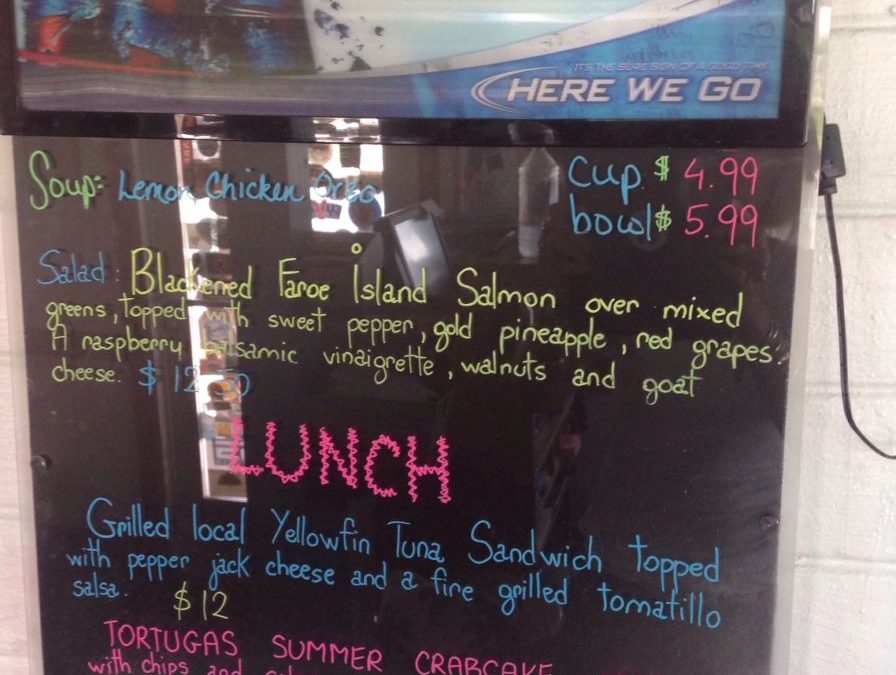 IT'S THE SURE SIGN OF A GOOD TIME
HERE WE GO
Soup: Lemon Chicken Orzo
Cup $ 4.99
bowl $ 5.99
Salad: Blackened Faroe Island Salmon over mixed
greens, topped with sweet pepper, gold pineapple, red grapes.
A raspberry balsamic vinaigrette, walnuts and goat
cheese. $ 12.50
LUNCH
Grilled local Yellowfin Tuna Sandwich topped
with pepper jack cheese and a fire grilled tomatillo
salsa. $12
TORTUGAS SUMMER CRABCAKE
with chips and